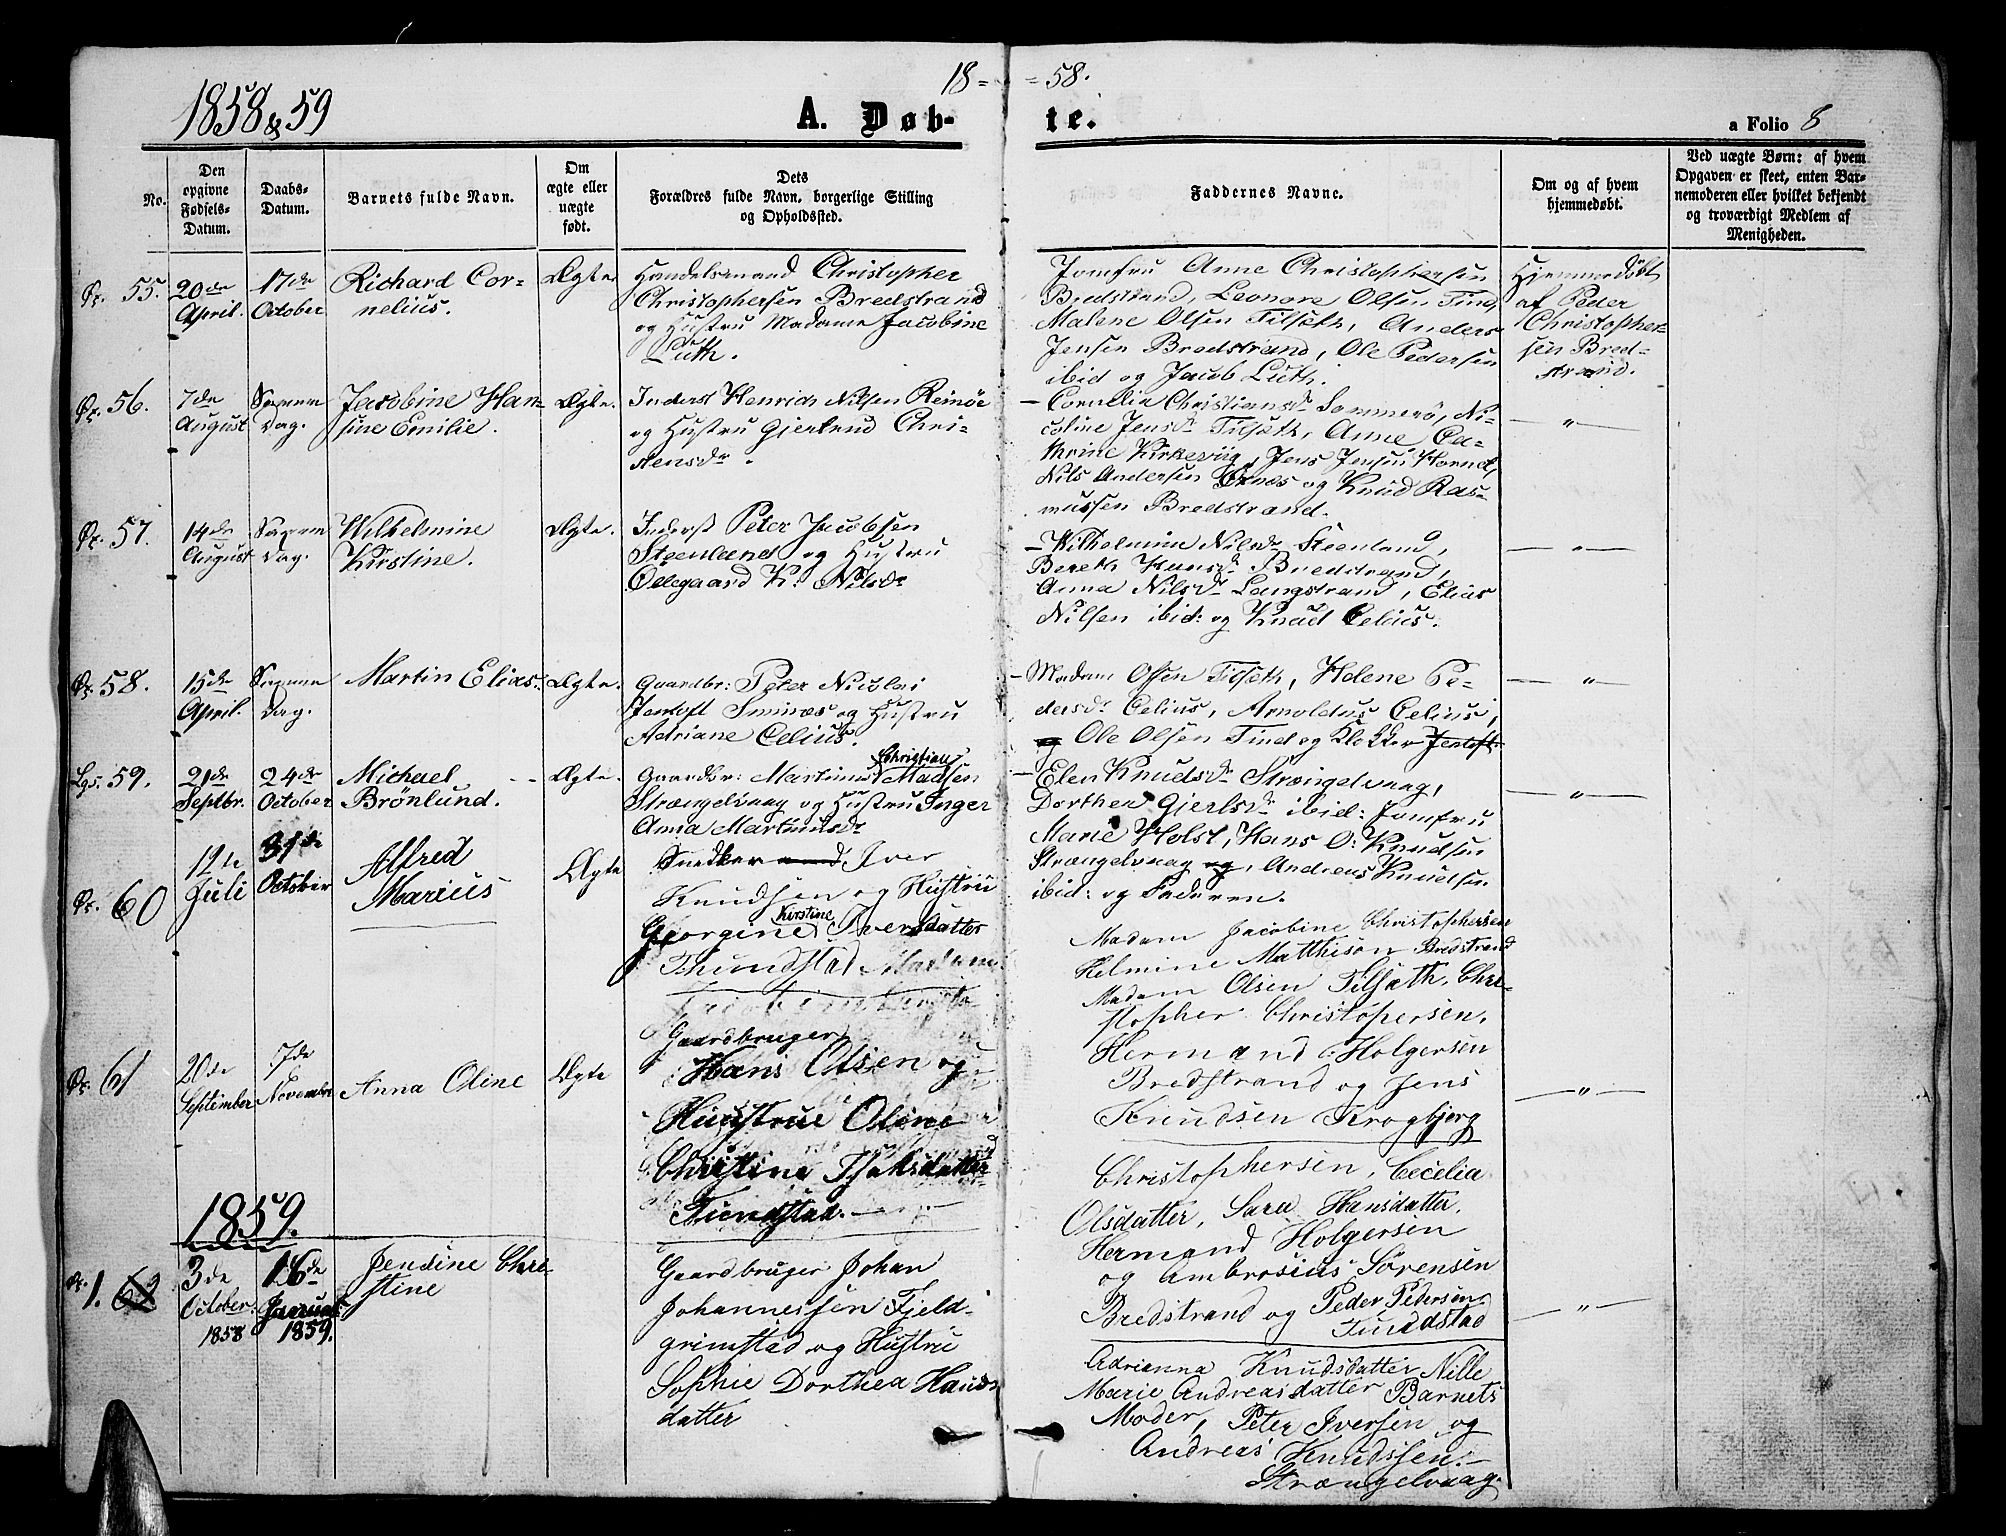 18 = = 58.
1858 & 59
A. Døb- te.
a Folio 8
No.
Den opgivne Fødsels-Datum.
Daabs-Datum.
Barnets fulde Navn.
Om ægte eller uægte født.
Dets Forældres fulde Navn, borgerlige Stilling og Opholdssted.
Faddernes Navne.
Om og af hvem hjemmedøbt.
Ved uægte Børn: af hvem Opgaven er skeet, enten Barnemoderen eller hvilket bekjendt og troværdigt Medlem af Menigheden.
Øx. 55.
20de April.
17de October
Richard Cor-
nelius.
Ægte.
Handelsmand Christopher
Christophersen Bredstrand
og Hustru Madame Jacobine
Luth.
Jomfru Anne Christophersen
Bredstrand, Leonore Olsen Tind,
Malene Olsen Tilsæth, Anders
Jensen Bredstrand, Ole Pedersen
ibid og Jacob Luth.
Hjemmedøbt
af Peder
Christopher-
sen Bred-
strand.
Øx. 56.
7de August
Samme Dag.
Jacobine Han-
sine Emilie.
Ægte.
Inderst Henrich Nilsen Reinöe
og Hustru Gjertrud Chri-
stensdr.
- Cornelia Christiansdr Sommerö, Ni-
coline Jensdr Tilsæth, Anne Ca-
thrine Kirkevüg, Jens Jensen Hornet,
Nils Andersen Örnæs og Knud Ras-
mussen Bredstrand.
— " —
Øx. 57.
14de August
Samme Dag.
Wilhelmine
Kirstine.
Ægte.
Inderst Peter Jacobsen
Steenland og Hustru
Oelegaard K. Nilsdr
- Wilhelmine Nilsdr Steenland,
Bereth Hansdr Bredstrand,
Anna Nilsdr Langstrand, Elias
Nilsen ibid: og Knud Celius.
— " —
Øx. 58.
15de April.
Samme Dag.
Martin Elias.
Ægte.
Gaardbr: Peter Nicolai
Jentoft Sminæs og Hustru
Adriane Celius.
- Madam Olsen Tilsæth, Helene Pe-
dersdr Celius, Arnoldus Celius,
og Ole Olsen Tind og Klokker Jentoft.
— " —
Lgs. 59.
21de Septbr.
24de October
Michael
Brönlund.
Ægte.
Christian
Gaardbr: Martinus Madsen
Strængelvaag og Hustru Inger
Anna Martinusdr
- Elen Knudsdr Strængelvaag,
Dorthea Gjertsdr ibid: Jomfru
Marie Holst, Hans O: Knudsen
Strængelvaag og, Andreas Knudsen
ibid: og Faderen.
— " —
Øx. 60
12te Juli
31de October
Alfred
Marius
Ægte
Snedker Iver
Knudsen og Hustru
Kirstine
Georgine Iversdatter
Thundstad
Madam Jacobine Christophersen
Helmine Matthison Bredstrand
Madam Olsen Tilsæth, Chri-
stopher Christopersen,
Hermand Holgersen
Bredstrand og Jens
Knudsen Krogbjerg
Øx. 61
20de September
7de November
Anna Oline
Ægte
Gaardbruger
Hans Olsen og
Hustrue Oline
Christine Isaksdatter
Tundstad.
Christophersen, Cecelia
Olsdatter, Sara Hansdatter,
Hermand Holgersen
og Ambrosius Sørensen
Bredstrand og Peder Pedersen
Tundstad
— " —
1859.
Øx. 1. 62
3de October 1858
16de Januar 1859.
Jendine Chri-
stine
Gaardbruger Johan
Johannessen Fjeld-
grimstad og Hustru
Sophie Dorthea Hans-
datter
Adrianna Knudsdatter, Nille
Marie Andreasdatter Barnets
Moder, Peter Iversen og
Andreas Knudssen.
Strængelvaag.
— " —